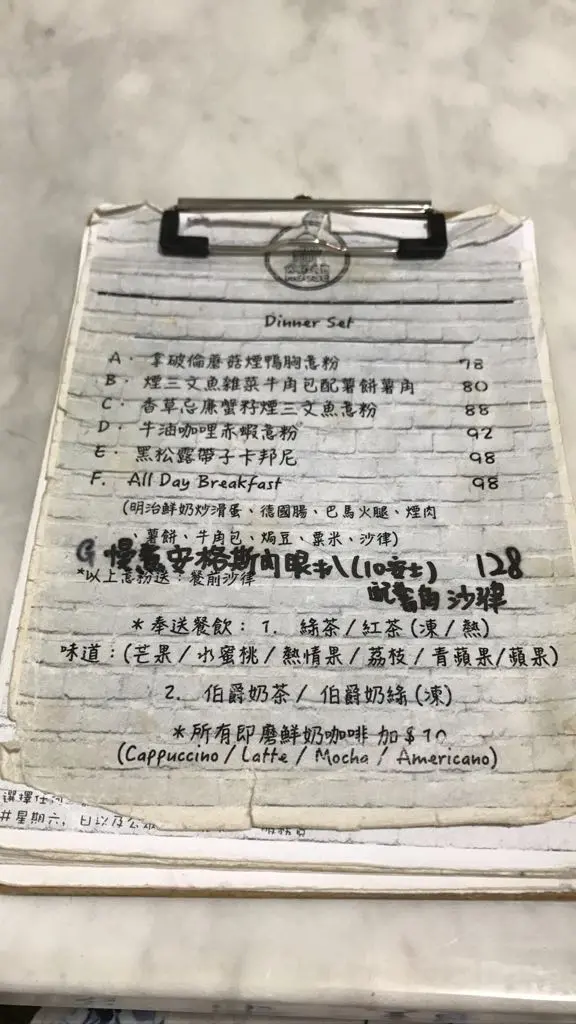 Dinner Set
A. 拿破倫蘑菇煙鴨胸意粉 78
B. 煙三文魚雜菜牛角包配薯餅薯角 80
C. 香草忌廉蟹籽煙三文魚意粉 88
D. 牛油咖哩赤蝦意粉 92
E. 黑松露帶子卡邦尼 98
F. All Day Breakfast 98
(明治鮮奶炒滑蛋、德國腸、巴馬火腿、煙肉
、薯餅、牛角包、焗豆、粟米、沙律)
G 慢煮安格斯肉眼扒(10安士) 128
配薯角沙律
*以上意粉送：餐前沙律
*奉送餐飲：1. 綠茶/紅茶(凍/熱)
味道：(芒果/水蜜桃/熱情果/荔枝/青蘋果/蘋果)
2. 伯爵奶茶/伯爵奶綠(凍)
*所有即磨鮮奶咖啡加$10
(Cappuccino/Latte/Mocha/Americano)
選擇任何
#星期六，日以及公眾